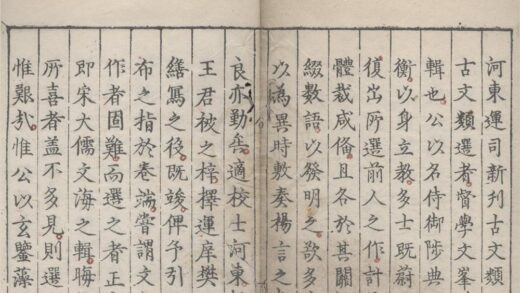 河東運司新刊古文類
古文類選者督學文峯
輯也公以名侍御陟典
衡以身立教多士既蔚
復出所選前人之作計
體裁咸俻且各於其關
綴數語以發明之欲多
以為異時敷奏楊言之
良亦勤矣適校士河東
王君被之梓擇運庠樊
繕寫之役既竣俾予引
布之指於卷端嘗謂文
作者固難而選之者正
即宋大儒文海之輯晦
所喜者盖不多見則選
惟艱㢤惟公以玄鑒藻